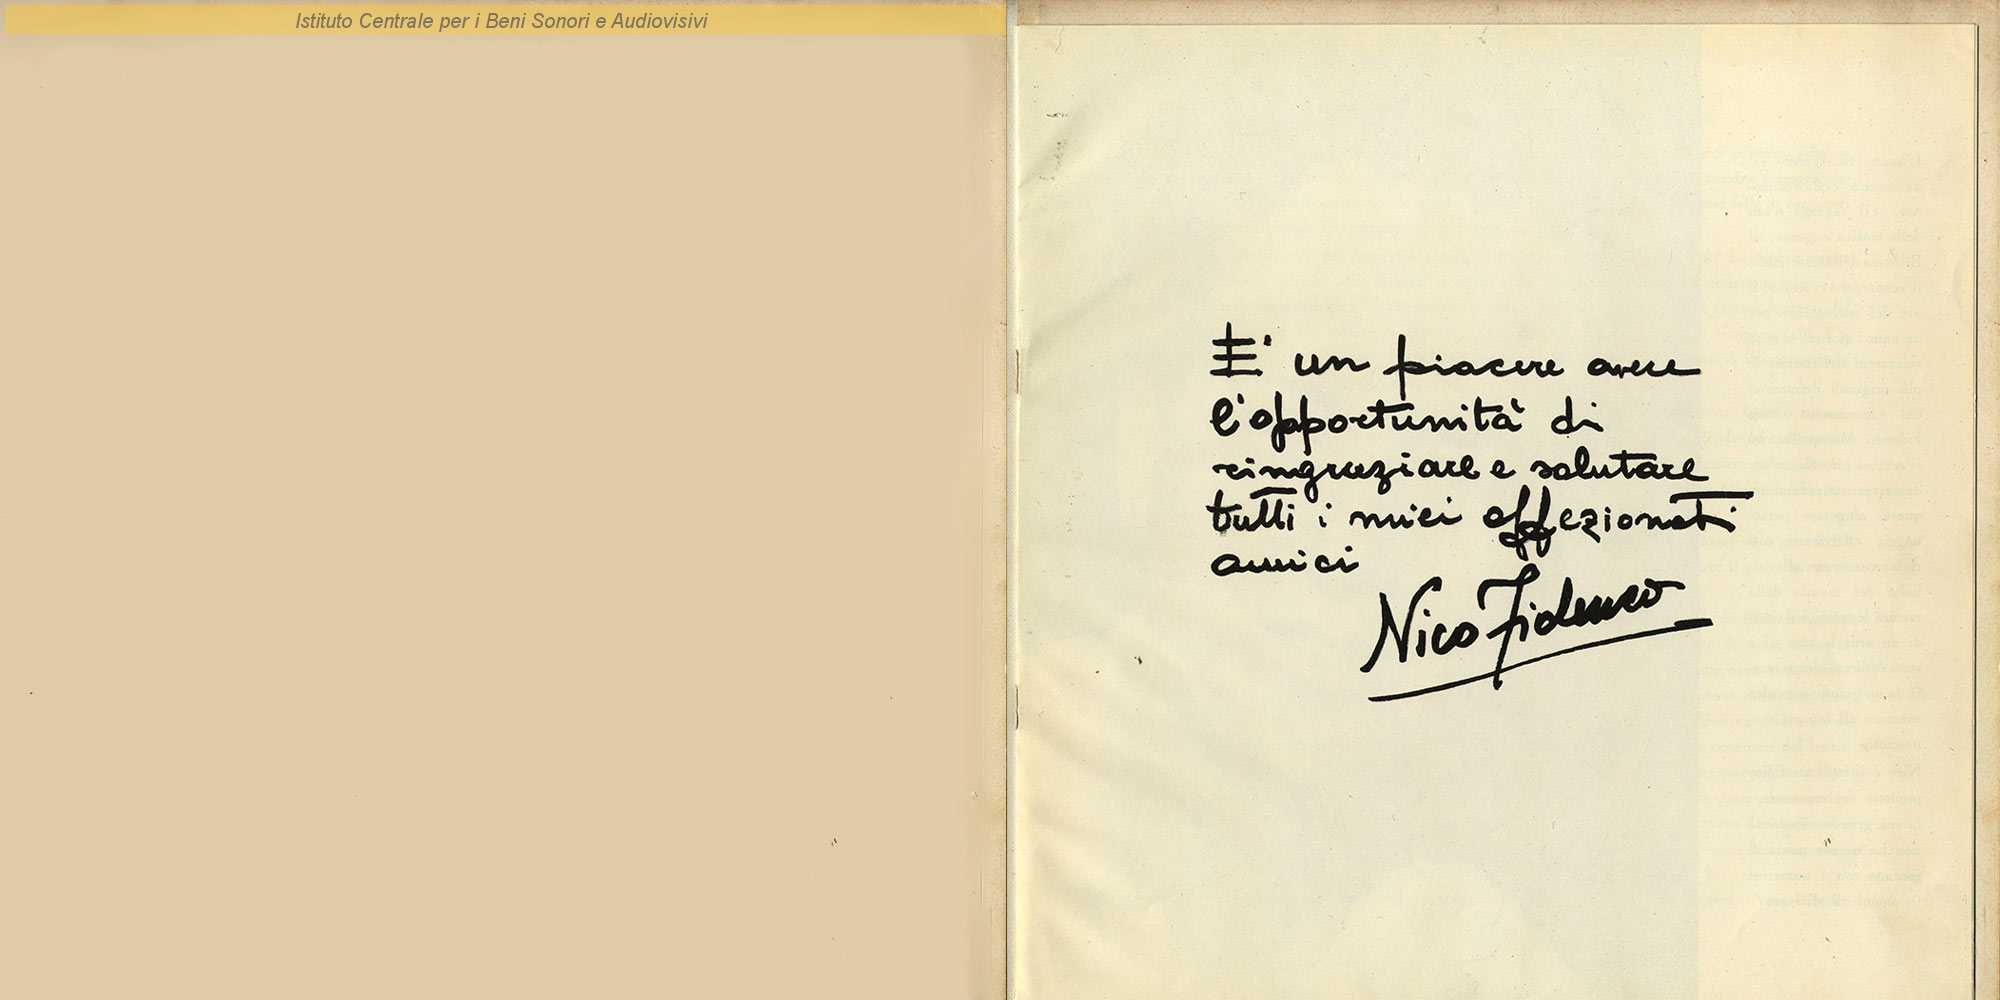 Istituto Centrale per i Beni Sonori e Audiovisivi
E' un piacere avere
l'opportunità di
ringraziare e salutare
tutti i miei affezionati
amici
Nico Fidenco